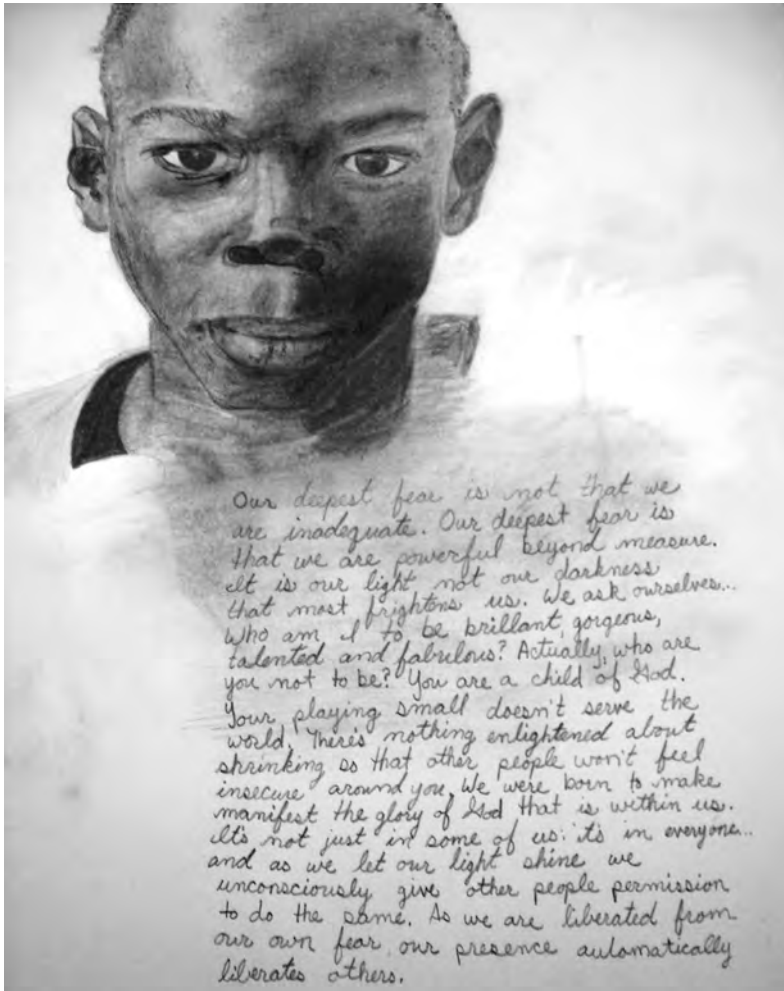 Our deepest fear is not that we
are inadequate. Our deepest fear is
that we are powerful beyond measure.
It is our light not our darkness
that most frightens us. We ask ourselves...
who am I to be brillant, gorgeous,
talented and fabulous? Actually, who are
you not to be? You are a child of God.
Your playing small doesn't serve the
world. There's nothing enlightened about
shrinking so that other people won't feel
insecure around you. We were born to make
manifest the glory of God that is within us.
It's not just in some of us: it's in everyone...
and as we let our light shine we
unconsciously give other people permission
to do the same. As we are liberated from
our own fear, our presence automatically
liberates others.